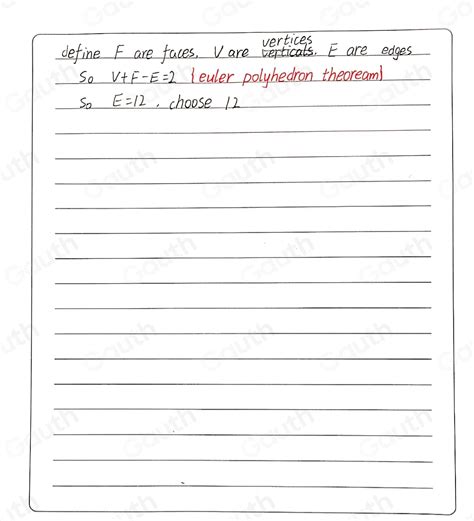 define F are faces, V are verticals. vertices E are edges
So V+F-E=2 {euler polyhedron theoream}
So E=12, choose 12
Gauth